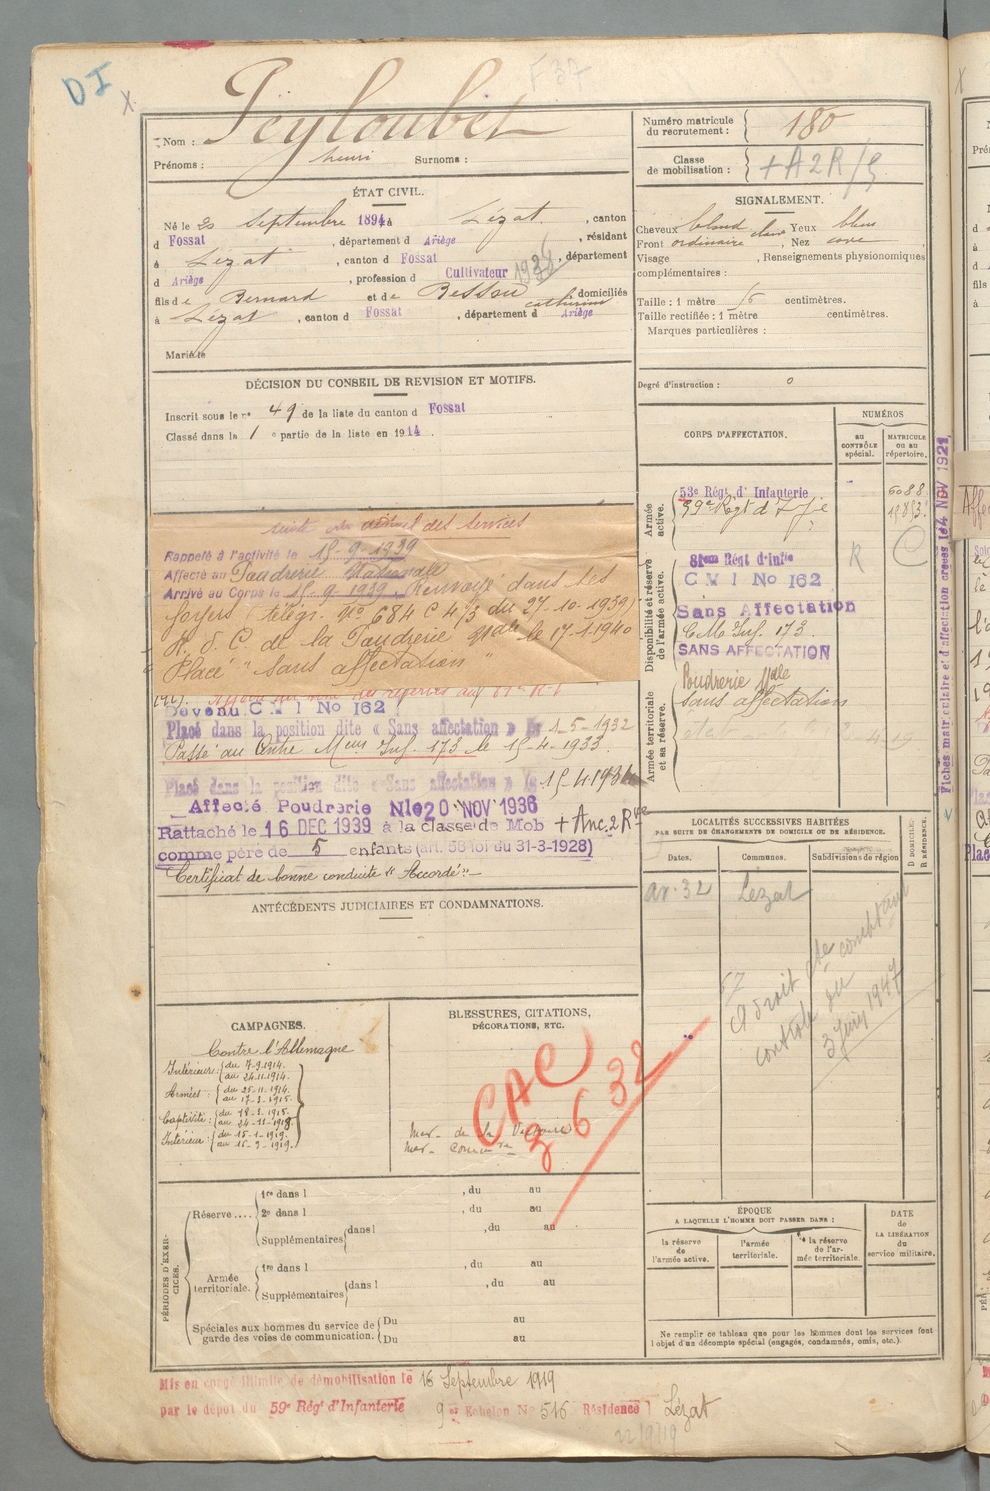 DI
Nom : Peyloubet
Prénoms : henri Surnoms :
ÉTAT CIVIL.
Né le 20 Septembre 1894 à Lézat, canton
d Fossat, département d Ariège, résidant
à Lézat, canton d Fossat, département
d Ariège, profession d Cultivateur
fils de Bernard et de Bessou catherine domiciliés
à Lezat, canton d Fossat, département d Ariège
Marié le
DÉCISION DU CONSEIL DE REVISION ET MOTIFS.
Inscrit sous le n° 49 de la liste du canton d Fossat
Classé dans la 1 e partie de la liste en 1914.
Suite du détail des services
Rappelé à l'activité le 15-9-1939
Affecté au Poudrerie Nationale
Arrivé au Corps le 15-9-1939. Renvoyé dans ses
foyers (télégr. N° 684 C 4/3 du 27-10-1939)
R. d. C de la Poudrerie Nale le 17-1-1940
Placé "sans affectation"
Devenu C M I No 162
Placé dans la position dite « Sans affectation » le 1-5-1932
Passé au Centre Meur Inf. 173 le 15-4-1933
Placé dans la position dite « Sans affectation » le 15-4-1934
Affecté Poudrerie Nle 20 NOV 1936
Rattaché le 16 DEC 1939 à la classe de Mob + Anc. 2 Rve
comme père de 5 enfants (art. 58 loi du 31-3-1928)
Certificat de bonne conduite "Accordé"
ANTÉCÉDENTS JUDICIAIRES ET CONDAMNATIONS.
CAMPAGNES.
Contre l'Allemagne
Intérieur : du 7-9-1914.
au 24-11-1914.
Armées : du 25-11-1914.
au 17-3-1915.
Captivité : du 18-3-1915.
au 24-11-1918.
Intérieur : du 15-1-1919.
au 15-9-1919.
BLESSURES, CITATIONS,
DÉCORATIONS, ETC.
CAC
3 6 32
Mer. de la Victoire
PÉRIODES D'EXERCICES.
Réserve....
1re dans l , du au
2e dans l , du au
Supplémentaires dans l , du au
Armée territoriale.
1re dans l , du au
Supplémentaires dans l , du au
Spéciales aux hommes du service de garde des voies de communication.
Du au
Du au
Mis en congé illimité de démobilisation le 16 Septembre 1919
par le dépôt du 59e Régt d'Infanterie 9 e Echelon No 516 Résidence Lézat
22/9/19
Numéro matricule du recrutement : 180
Classe de mobilisation : + A 2 R/
SIGNALEMENT.
Cheveux blond clair Yeux bleus
Front ordinaire, Nez cave
Visage , Renseignements physionomiques
complémentaires :
Taille : 1 mètre centimètres.
Taille rectifiée : 1 mètre centimètres.
Marques particulières :
Degré d'instruction : 0
CORPS D'AFFECTATION.
NUMÉROS
au CONTRÔLE spécial.
MATRICULE ou au répertoire.
Armée active.
53e Régt d'Infanterie 6088
59e Régt d'Infie
Disponibilité et réserve de l'armée active.
81eme Régt d'Infie
C M I No 162 R
Sans Affectation
C.M. Inf. 173.
SANS AFFECTATION
Armée territoriale et sa réserve.
Poudrerie Nale
Sans affectation
Fiches matriculaire et d'affectation créées le 4 NOV 1921
LOCALITÉS SUCCESSIVES HABITÉES
PAR SUITE DE CHANGEMENTS DE DOMICILE OU DE RÉSIDENCE.
Dates. Communes. Subdivisions de région
D DOMICILE. R RÉSIDENCE.
av. 32 Lézat
A droit cte combattant
contrôle du
3 Juin 1947
ÉPOQUE
A LAQUELLE L'HOMME DOIT PASSER DANS :
la réserve de l'armée active.
l'armée territoriale.
la réserve de l'armée territoriale.
DATE de LA LIBÉRATION du service militaire.
Ne remplir ce tableau que pour les hommes dont les services font
l'objet d'un décompte spécial (engagés, condamnés, omis, etc.).